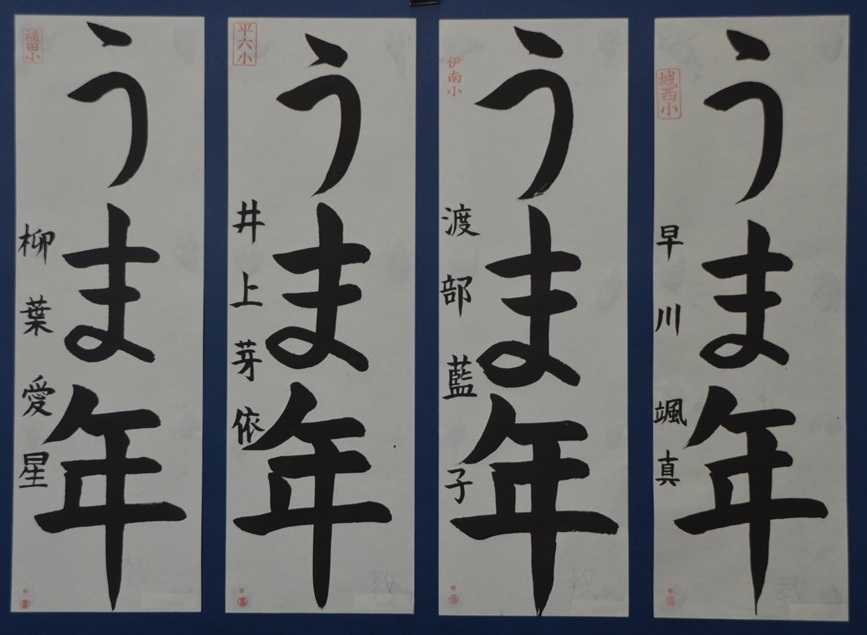 うま年
早川颯真
城西小
うま年
渡部藍子
伊南小
うま年
井上芽依
平六小
うま年
柳葉愛星